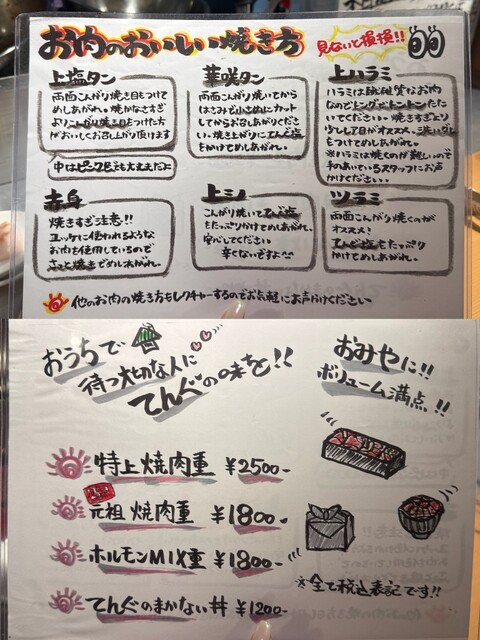 お肉のおいしい焼き方
見ないと損損!!
上塩タン
両面こんがり焼き目をつけて
めしあがれ。焼かなさすぎ
よりこんがり焼き目つけた方
がおいしくお召し上がり頂けます
中はピンク色でも大丈夫だよ
華咲タン
両面こんがり焼いてから
はさみで小さめにカット
してからお召しあがりくださ
い。焼き上がりにてんぐ塩
をかけてめしあがれ。
上ハラミ
ハラミは繊維質なお肉
なのでトングでトントンたた
いてください。焼きすぎより
少しレア目がオススメ。洗いダレ
をつけてめしあがれ。
※ハラミは焼くのが難しいので
手のあいているスタッフにお声
がけください。
赤身
焼きすぎ注意!!
ユッケに使われるような
お肉を使用しているので
さっと焼きでめしあがれ。
上ミノ
こんがり焼いててんぐ塩
をたっぷりかけてめしあがれ。
安心してください
辛くないですよ
ツラミ
両面こんがり焼くのが
オススメ!
てんぐ塩をたっぷり
かけてめしあがれ。
他のお肉の焼き方もレクチャーするのでお気軽にお声がけください
おうちで
待つ大切な人に
てんぐの味を!!
おみやに!!
ボリューム満点!!
特上焼肉重 ¥2500-
元祖焼肉重 ¥1800-
ホルモンMIX重 ¥1800-
てんぐのまかない丼 ¥1200-
※全て税込表記です!!